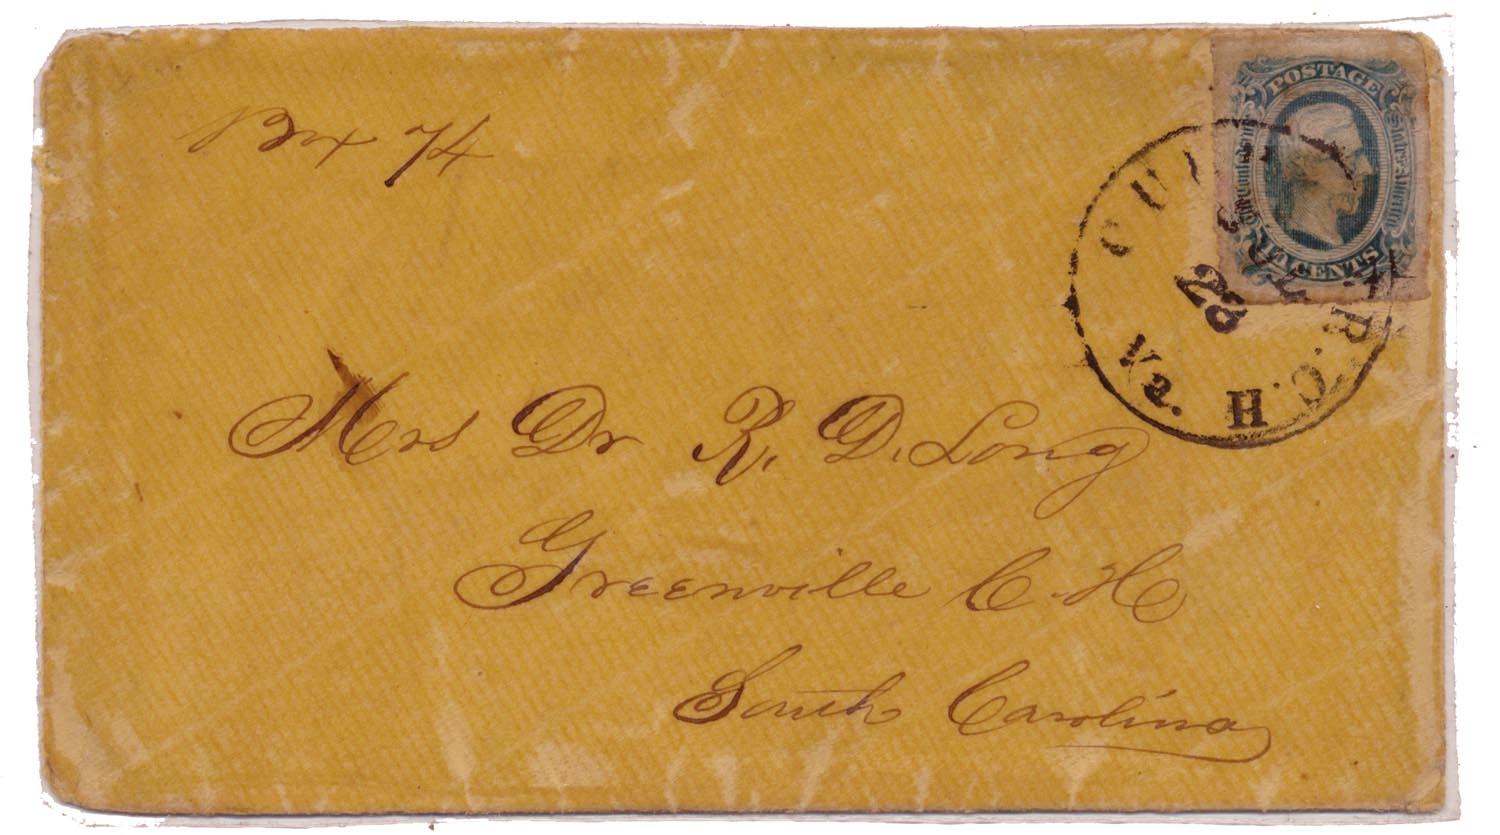 Box 74
POSTAGE
The Confederate States of America
CENTS
CUL
R. C. H.
Va.
28
Mrs Dr R. D. Long
Greenville C. H
South Carolina